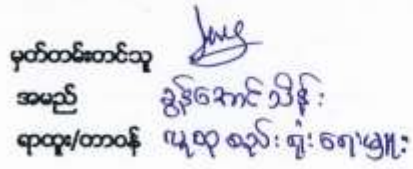 မှတ်တမ်းတင်သူ
အမည် ခွန်အောင်သိန်း
ရာထူး/တာဝန် လူထုစည်းရုံးရေးမှူး